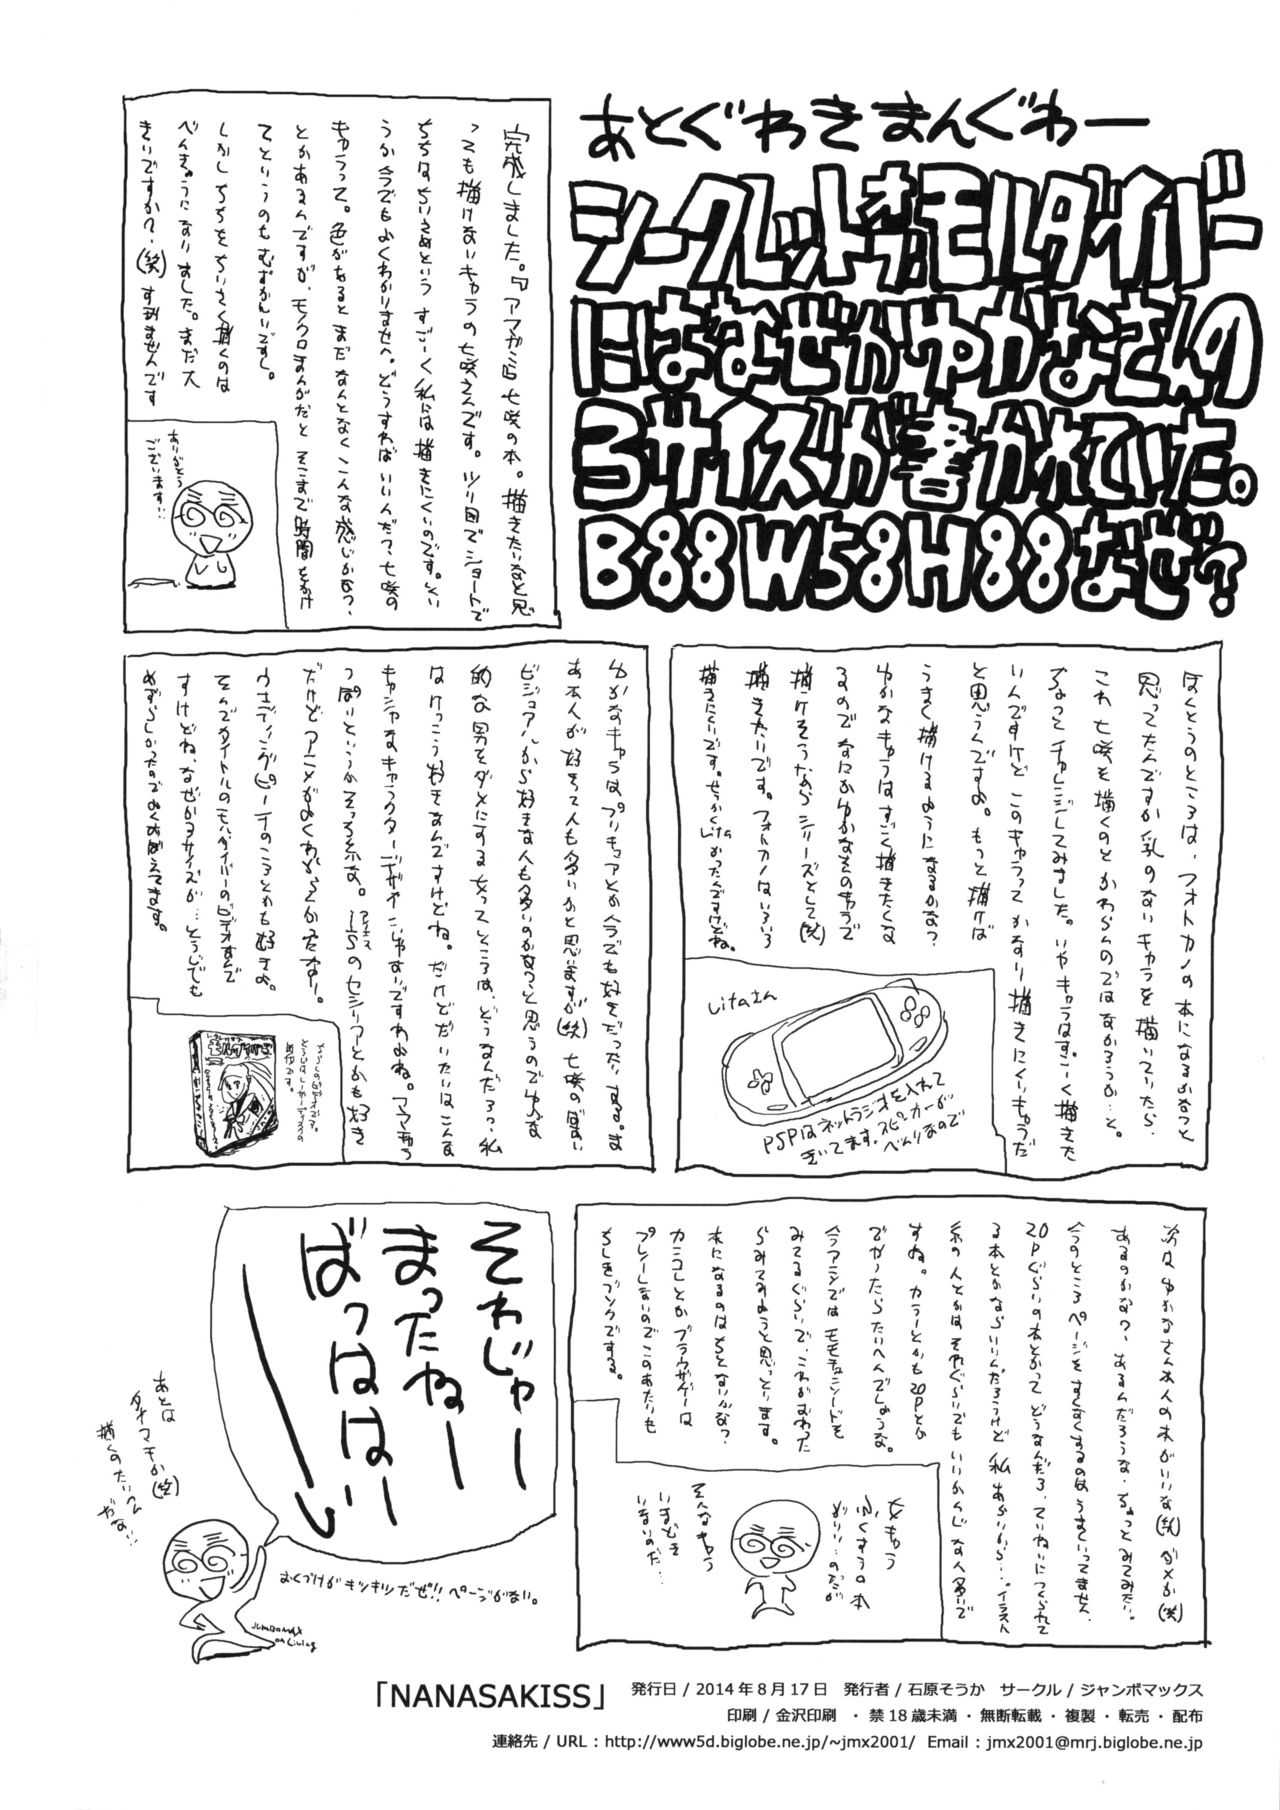 あとぐわきまんぐわー
シークレットオブモルダイバー
にはなぜかゆかなさんの
3サイズが書かれていた。
B88W58H88なぜ?
完成しました。『アマガミ』七咲の本。描きたいなと思
っても描けないキャラの七咲さんです。ツリ目でショートで
ちちはちいさめという すごーく私には描きにくいのです。
うか今でもよくわかりませんへ。どうすればいいんだ?七咲の
キャラって。色があるとまだなんとなくこんな感じかな?
とかあるんですが、モノクロまんがだとそこまで時間をかけ
てというのもむずかしいですし。
しかしちちをちいさく描くのは
べんきょうになりました。まだ大
きいですか?(笑)すみませんです
ありがとう
ございます…
ほんとうのところは、フォトカノの本になるかなっと
思ってたんですが乳のないキャラを描いていたら、
これ七咲を描くのとかわらんのではなかろうか…と。
ちょっとチャレンジしてみました。いやキャラはすごーく描きた
いんですけど このキャラってかなり描きにくいキャラだ
と思うんですよ。もっと描けば
うまく描けるようになるかな?
ゆかなキャラはすごく描きたくな
るのでなにかゆかなさんのキャラで
描けそうならシリーズとして(笑)
描きたいです。フォトカノはいろいろ
描きにくいです。せっかくVita かったんですけどね。
Vitaさん
PSPはネットラジオを入れて
きいてます。スピーカーが
べんりなので
ゆかなキャラは、プリキュアとか今でも好きだったりする。ま
あ本人が好きって人も多いかと思いますが(笑)七咲のばあい
ビジュアルから好きな人も多いのかな?と思うのでゆかな
的な男をダメにする女ってところは、どうなんだろ?私
はけっこう好きなんですけどね。だけどだいたいはこんな
キャシャなキャラクターデザインじゃないですわよね。ママキャラ
っぽいというかそっち系な。ISのセシリアとかも好き
だけどアニメがよくわからなかったなー。
ウェディングピーチのころとかも好きよ。
そんでタイトルのモルダイバーのビデオなんで
すけどね、なぜか3サイズが…とうじでも
めずらしかったのでよくおぼえてます。
次はゆかなさん本人の本がいいな(笑)ダメか(笑)
あるのかな?、あるんだろうな、ちょっとみてみたい。
今のところページをすくなくするのはうまくいってません、
20Pぐらいの本とかって どうなんだろ、ていねいにつくられて
る本とかならいいんだろうけど 私 あらいから…。イラスト
系の人とかはそれぐらいでもいいかんじな人多いで
すね。カラーとかも20Pとか
でかったらたいへんでしょうな。
今アニメではモモキュンソードを
みてるぐらいで、これがおわった
らみてみようと思っとります。
本になるのはちとないかな?
カンコレとかブラウザゲーは
プレーしないのでこのあたりも
ちしきブソクでする。
そんなキャラ
いまどき
いないのだ…
それじゃー
まったねー
ばっははーい
あとは
タイマモか(笑)
描くのたいへん
だな…
おくづけがギリギリだぜ!!ページがない。
JUMBOMAX
on Living
「NANASAKISS」 発行日 / 2014年8月17日 発行者 / 石原そうか サークル / ジャンボマックス
印刷 / 金沢印刷 ・禁18歳未満・無断転載・複製・転売・配布
連絡先 / URL : http://www5d.biglobe.ne.jp/~jmx2001/ Email : jmx2001@mrj.biglobe.ne.jp